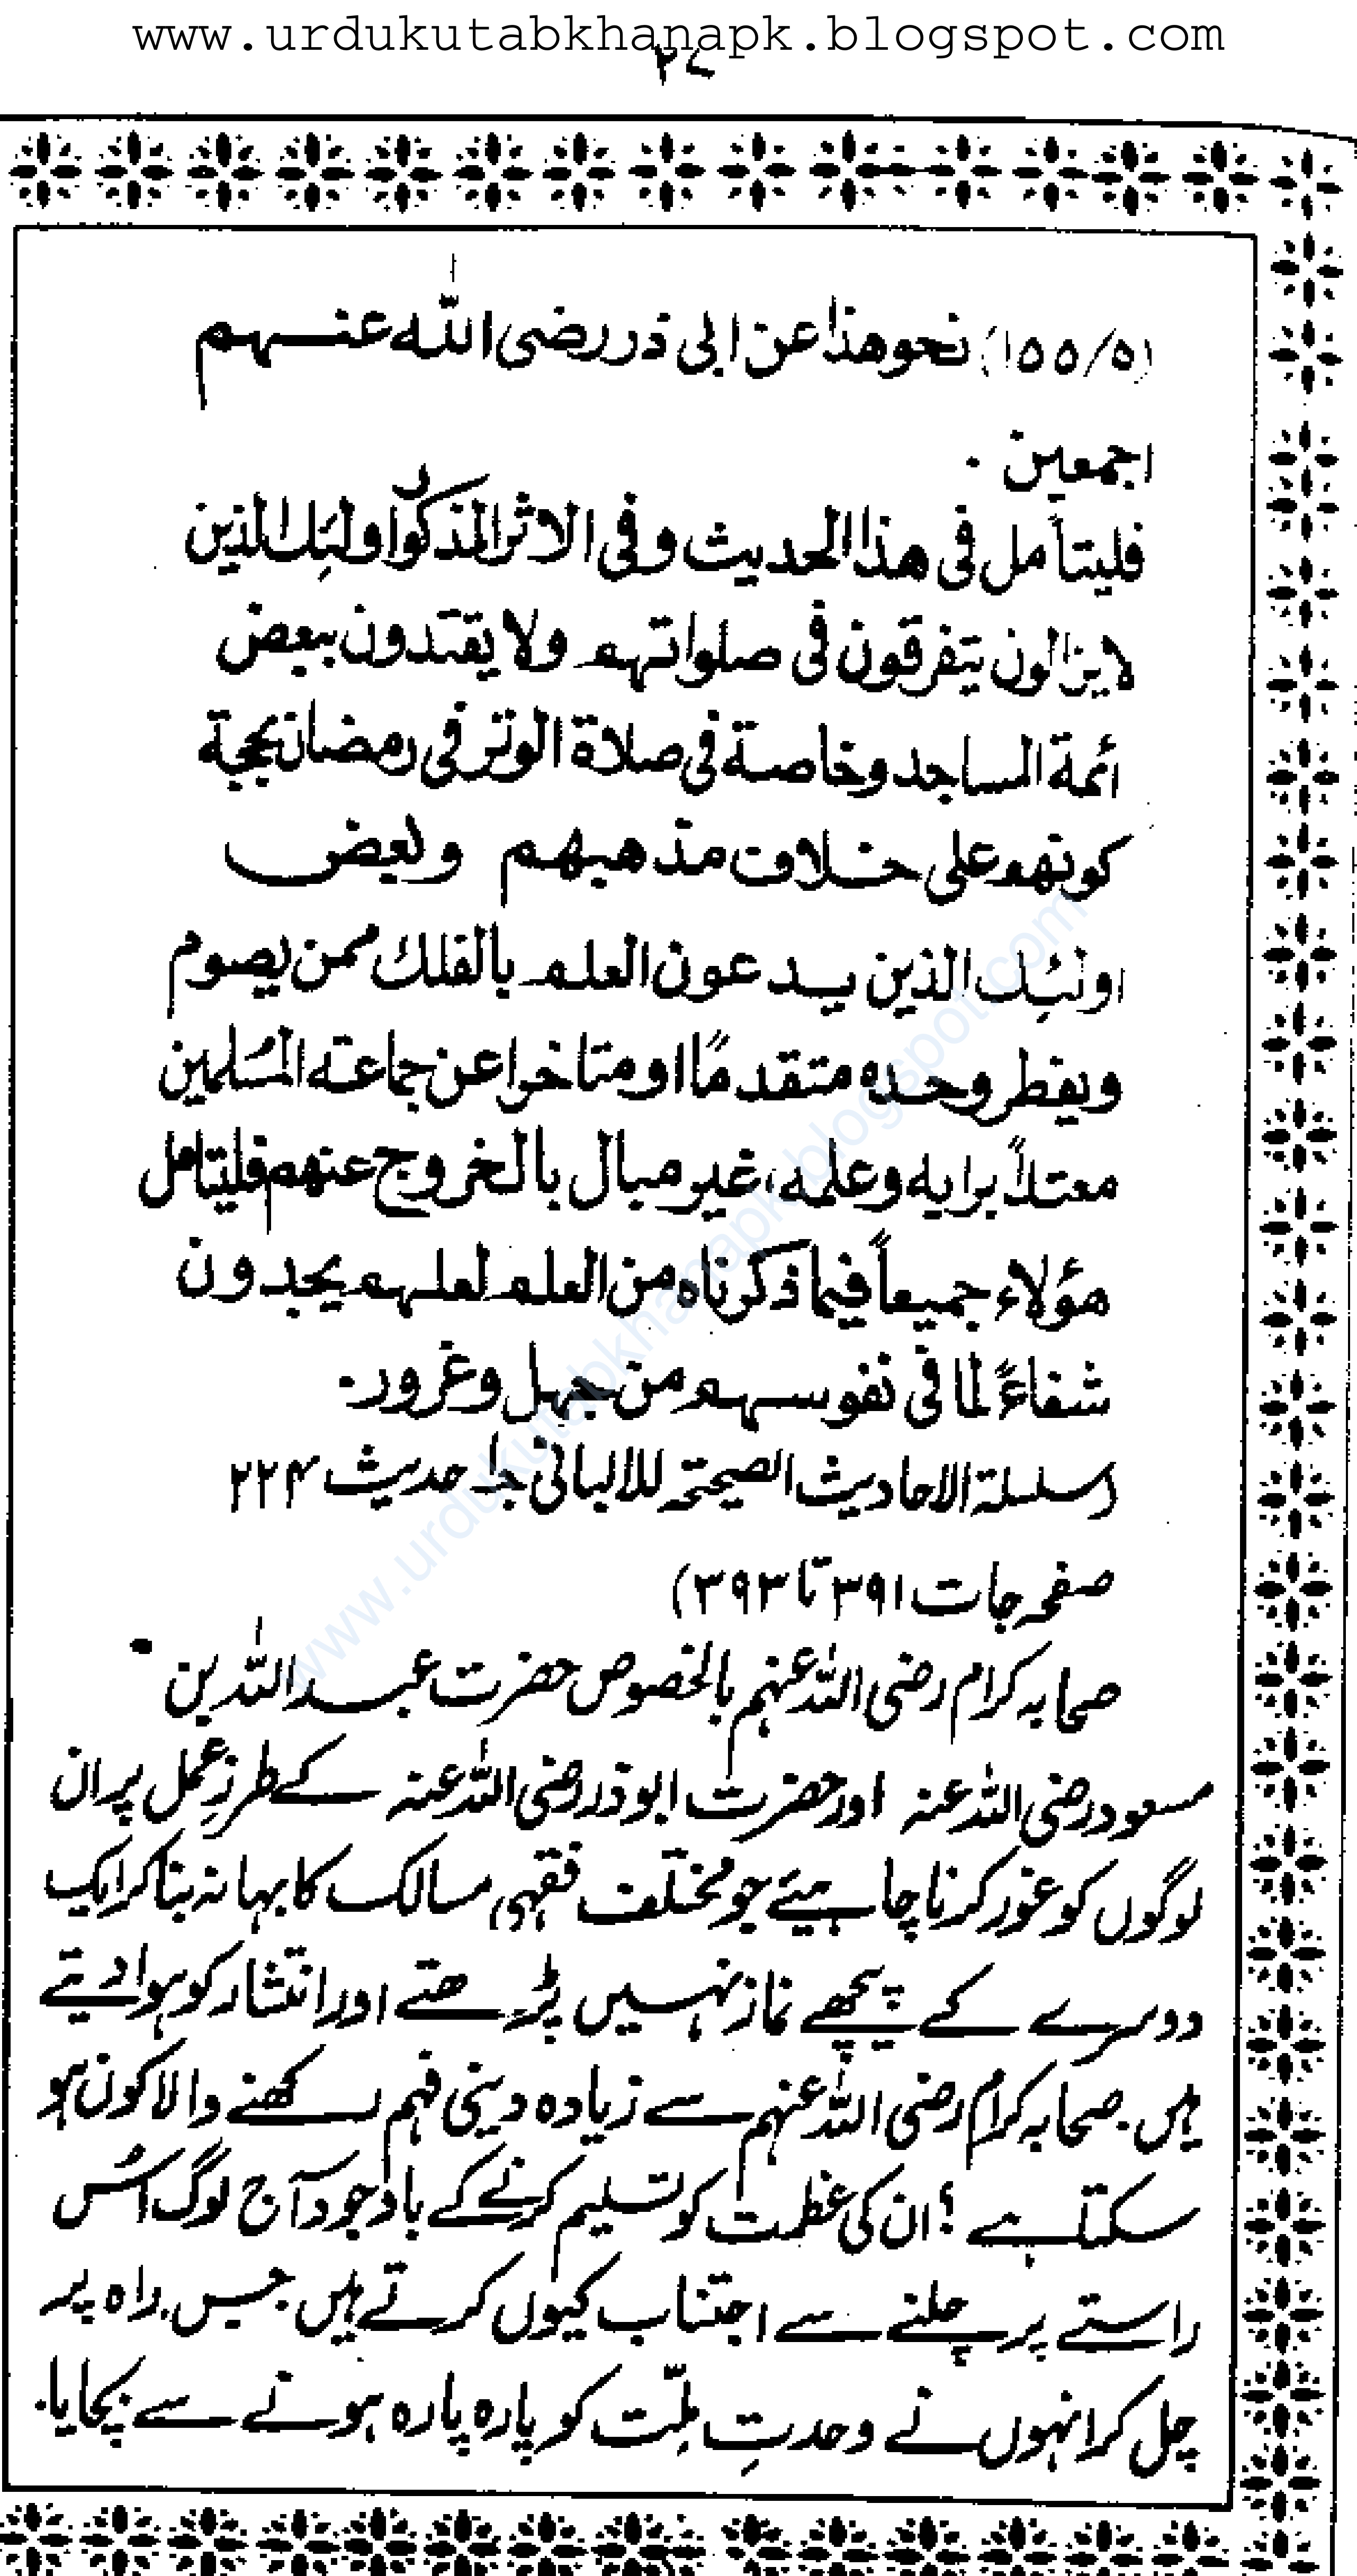 www.urdukutabkhanapk.blogspot.com
۲۷
(۱۵۵/۵) نحو هذا عن ابی ذر رضی الله عنهم
اجمعین .
فلیتأمل فی هذا الحدیث وفی الاثر المذکور اولئك الذین
لا یزالون یتفرقون فی صلواتهم ولا یقتدون ببعض
ائمة المساجد وخاصة فی صلاة الوتر فی رمضان بحجة
کونهم علی خلاف مذهبهم وبعض
اولئك الذین یدعون العلم بالفلك ممن یصوم
ویفطر وحده متقدمًا او متاخرا عن جماعته المسلمین
معتداً برایه وعلمه، غیر مبال بالخروج عنهم فلیتامل
هؤلاء جمیعاً فیما ذکرناه من العلم لعلهم یجدون
شفاءً لما فی نفوسهم من جهل وغرور.
(سلسلة الاحادیث الصحیحة للالبانی ج۱ حدیث ۲۲۴
صفحہ جات ۳۹۱ تا ۳۹۳)
صحابہ کرام رضی اللہ عنہم بالخصوص حضرت عبد اللہ بن
مسعود رضی اللہ عنہ اور حضرت ابوذر رضی اللہ عنہ کے طرزِ عمل پر ان
لوگوں کو غور کرنا چاہیئے جو مختلف فقہی مسالک کا بہانہ بنا کر ایک
دوسرے کے پیچھے نماز نہیں پڑھتے اور انتشار کو ہوا دیتے
ہیں . صحابہ کرام رضی اللہ عنہم سے زیادہ دینی فہم رکھنے والا کون ہو
سکتا ہے ؟ ان کی عظمت کو تسلیم کرنے کے باوجود آج لوگ اُس
راستے پر چلنے سے اجتناب کیوں کرتے ہیں جس راہ پر
چل کر انہوں نے وحدتِ ملّت کو پارہ پارہ ہونے سے بچایا.
www.urdukutabkhanapk.blogspot.com